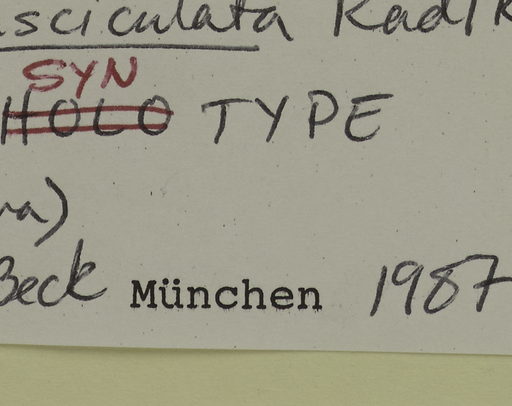 asciculata Radlk
SYN
HOLO TYPE
ra)
Beck München 1987